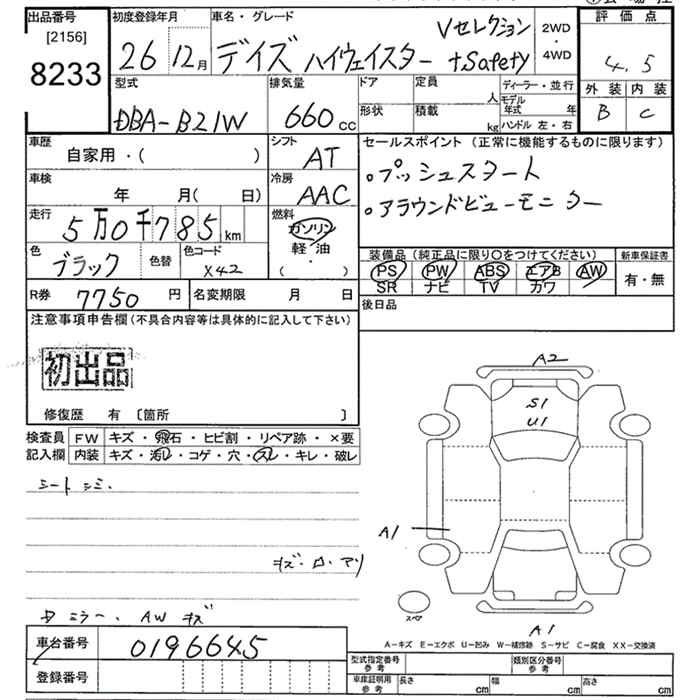 出品番号 [2156] 8233
初度登録年月 26 12月
車名・グレード デイズ ハイウェイスター Vセレクション +Safety
2WD・4WD
評価点 4.5
外装 内装
B C
型式 DBA-B21W
排気量 660cc
ドア 形状
定員 人
積載 kg
ディーラー・並行
モデル年式 年
ハンドル 左・右
車歴 自家用・( )
シフト AT
セールスポイント (正常に機能するものに限ります)
。プッシュスタート
。アラウンドビューモニター
車検 年 月( 日)
冷房 AAC
走行 5万0千785km
燃料 ガソリン 軽・油・( )
色 ブラック 色替 色コード X42
装備品(純正品に限り〇をつけてください)
PS PW ABS エアB AW
SR ナビ TV カワ
新車保証書 有・無
R券 7750円 名変期限 月 日
後日品
注意事項申告欄(不具合内容等は具体的に記入して下さい)
初出品
修復歴 有 〔箇所 〕
検査員記入欄
FW キズ・飛石・ヒビ割・リペア跡・×要
内装 キズ・汚レ・コゲ・穴・スレ・キレ・破レ
シートシミ.
キズ・ロ.アリ
ミラー、AW キズ
A2
S1
U1
A1
スペア
A1
A-キズ E-エクボ U-凹み W-補修跡 S-サビ C-腐食 XX-交換済
車台番号 0196645
登録番号
型式指定番号 参考 類別区分番号 参考
車庫証明用 参考 長さ cm 幅 cm 高さ cm